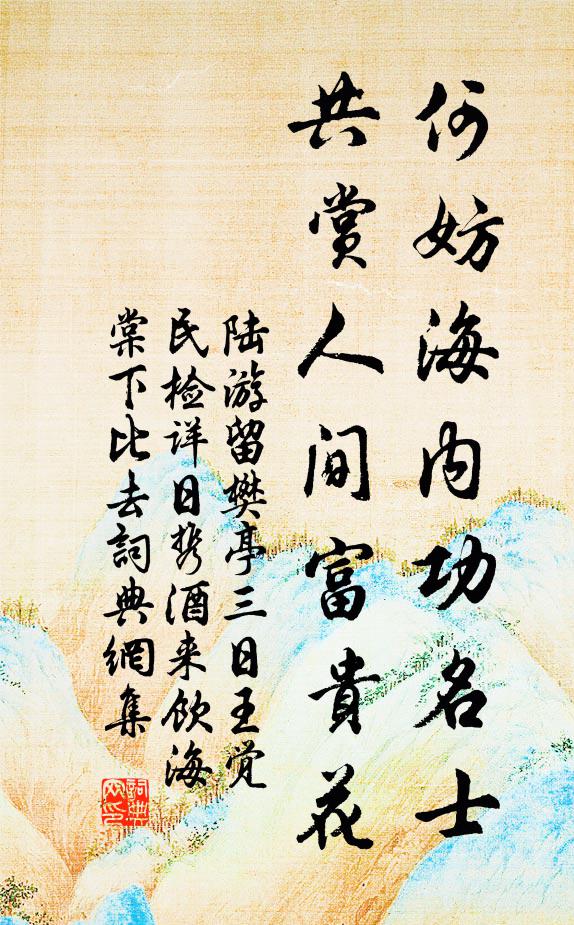 何妨海内功名士
共赏人间富貴花
陆游留樊亭三日王觉
民检详日携酒来饮海
棠下比去詞典網集
詞典